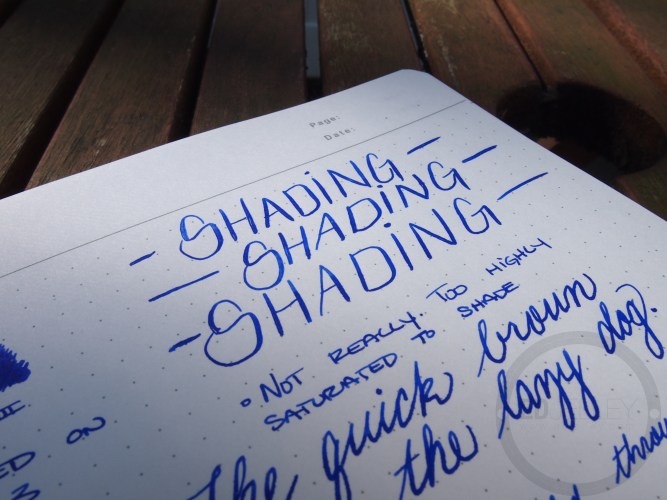 Page:
Date:
- SHADING -
- SHADING -
- SHADING -
• NOT REALLY. TOO HIGHLY
SATURATED TO SHADE
The quick brown
the lazy dog.
II
ED ON